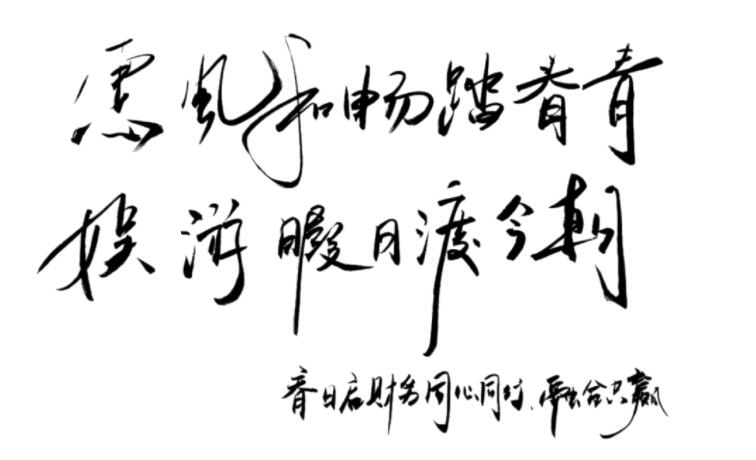 惠风和畅踏春青
娱游暇日渡今朝
春日启财务同心同行,融合共赢